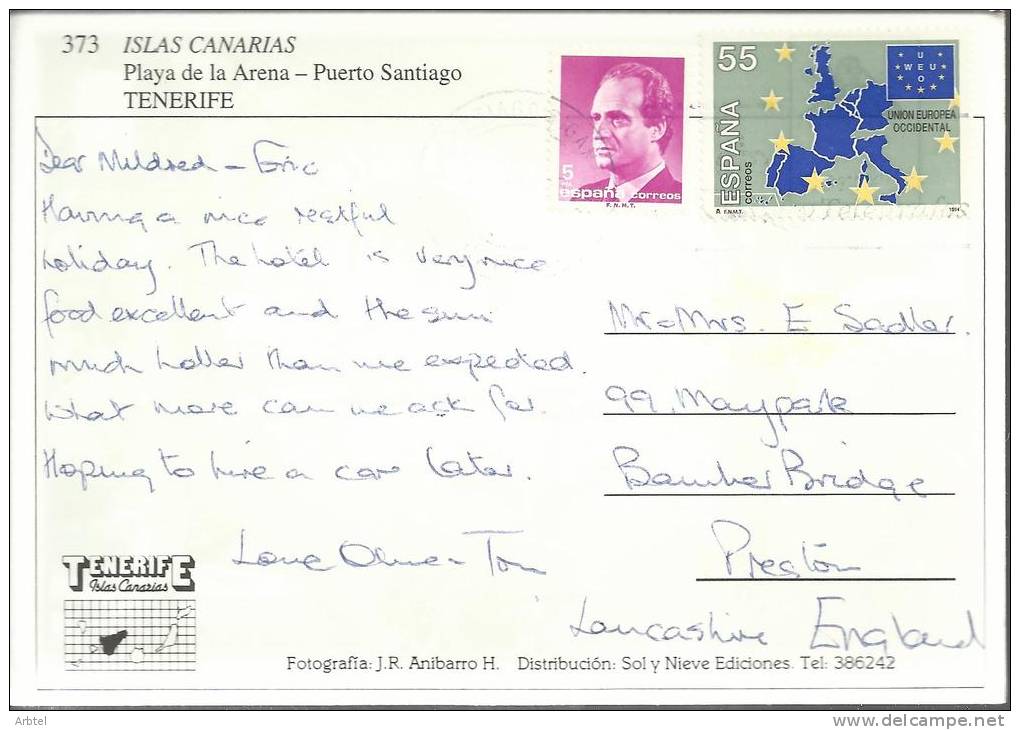 373 ISLAS CANARIAS
Playa de la Arena – Puerto Santiago
TENERIFE
5
PTA
españa correos
F.N.M.T.
55
ESPAÑA
correos
U
W E U
O
UNION EUROPEA
OCCIDENTAL
1994
Dear Mildred – Eric
Having a nice restful
holiday. The hotel is very nice
food excellent and the sun
much hotter than we expected.
What more can we ask for.
Hoping to hire a car later.
Love Olive – Tom
Mr – Mrs. E Sadler.
99 Maypark
Bamber Bridge
Preston
Lancashire England
TENERIFE
Islas Canarias
Fotografía: J.R. Anibarro H. Distribución: Sol y Nieve Ediciones. Tel: 386242
Arbtel
delcampe.net